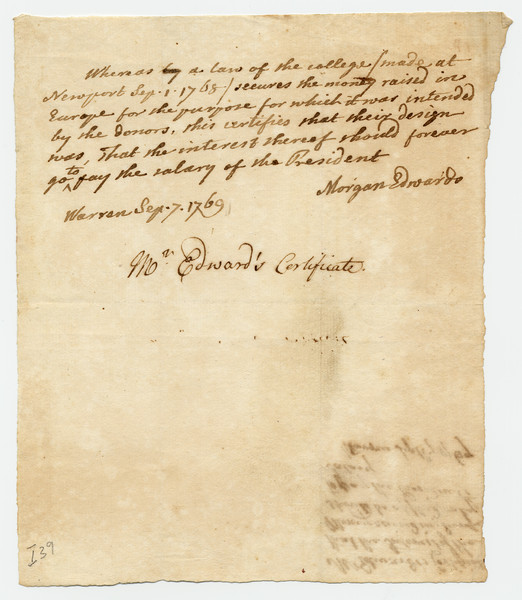 Whereas by a law of the college /made at
Newport Sep. 1. 1768/ secures the money raised in
Europe for the purpose for which it was intended
by the donors, this certifies that their design
was, That the interest thereof should forever
go to pay the salary of the President
Morgan Edwards
Warren Sep. 7. 1769
Mr. Edward's Certificate.
I39